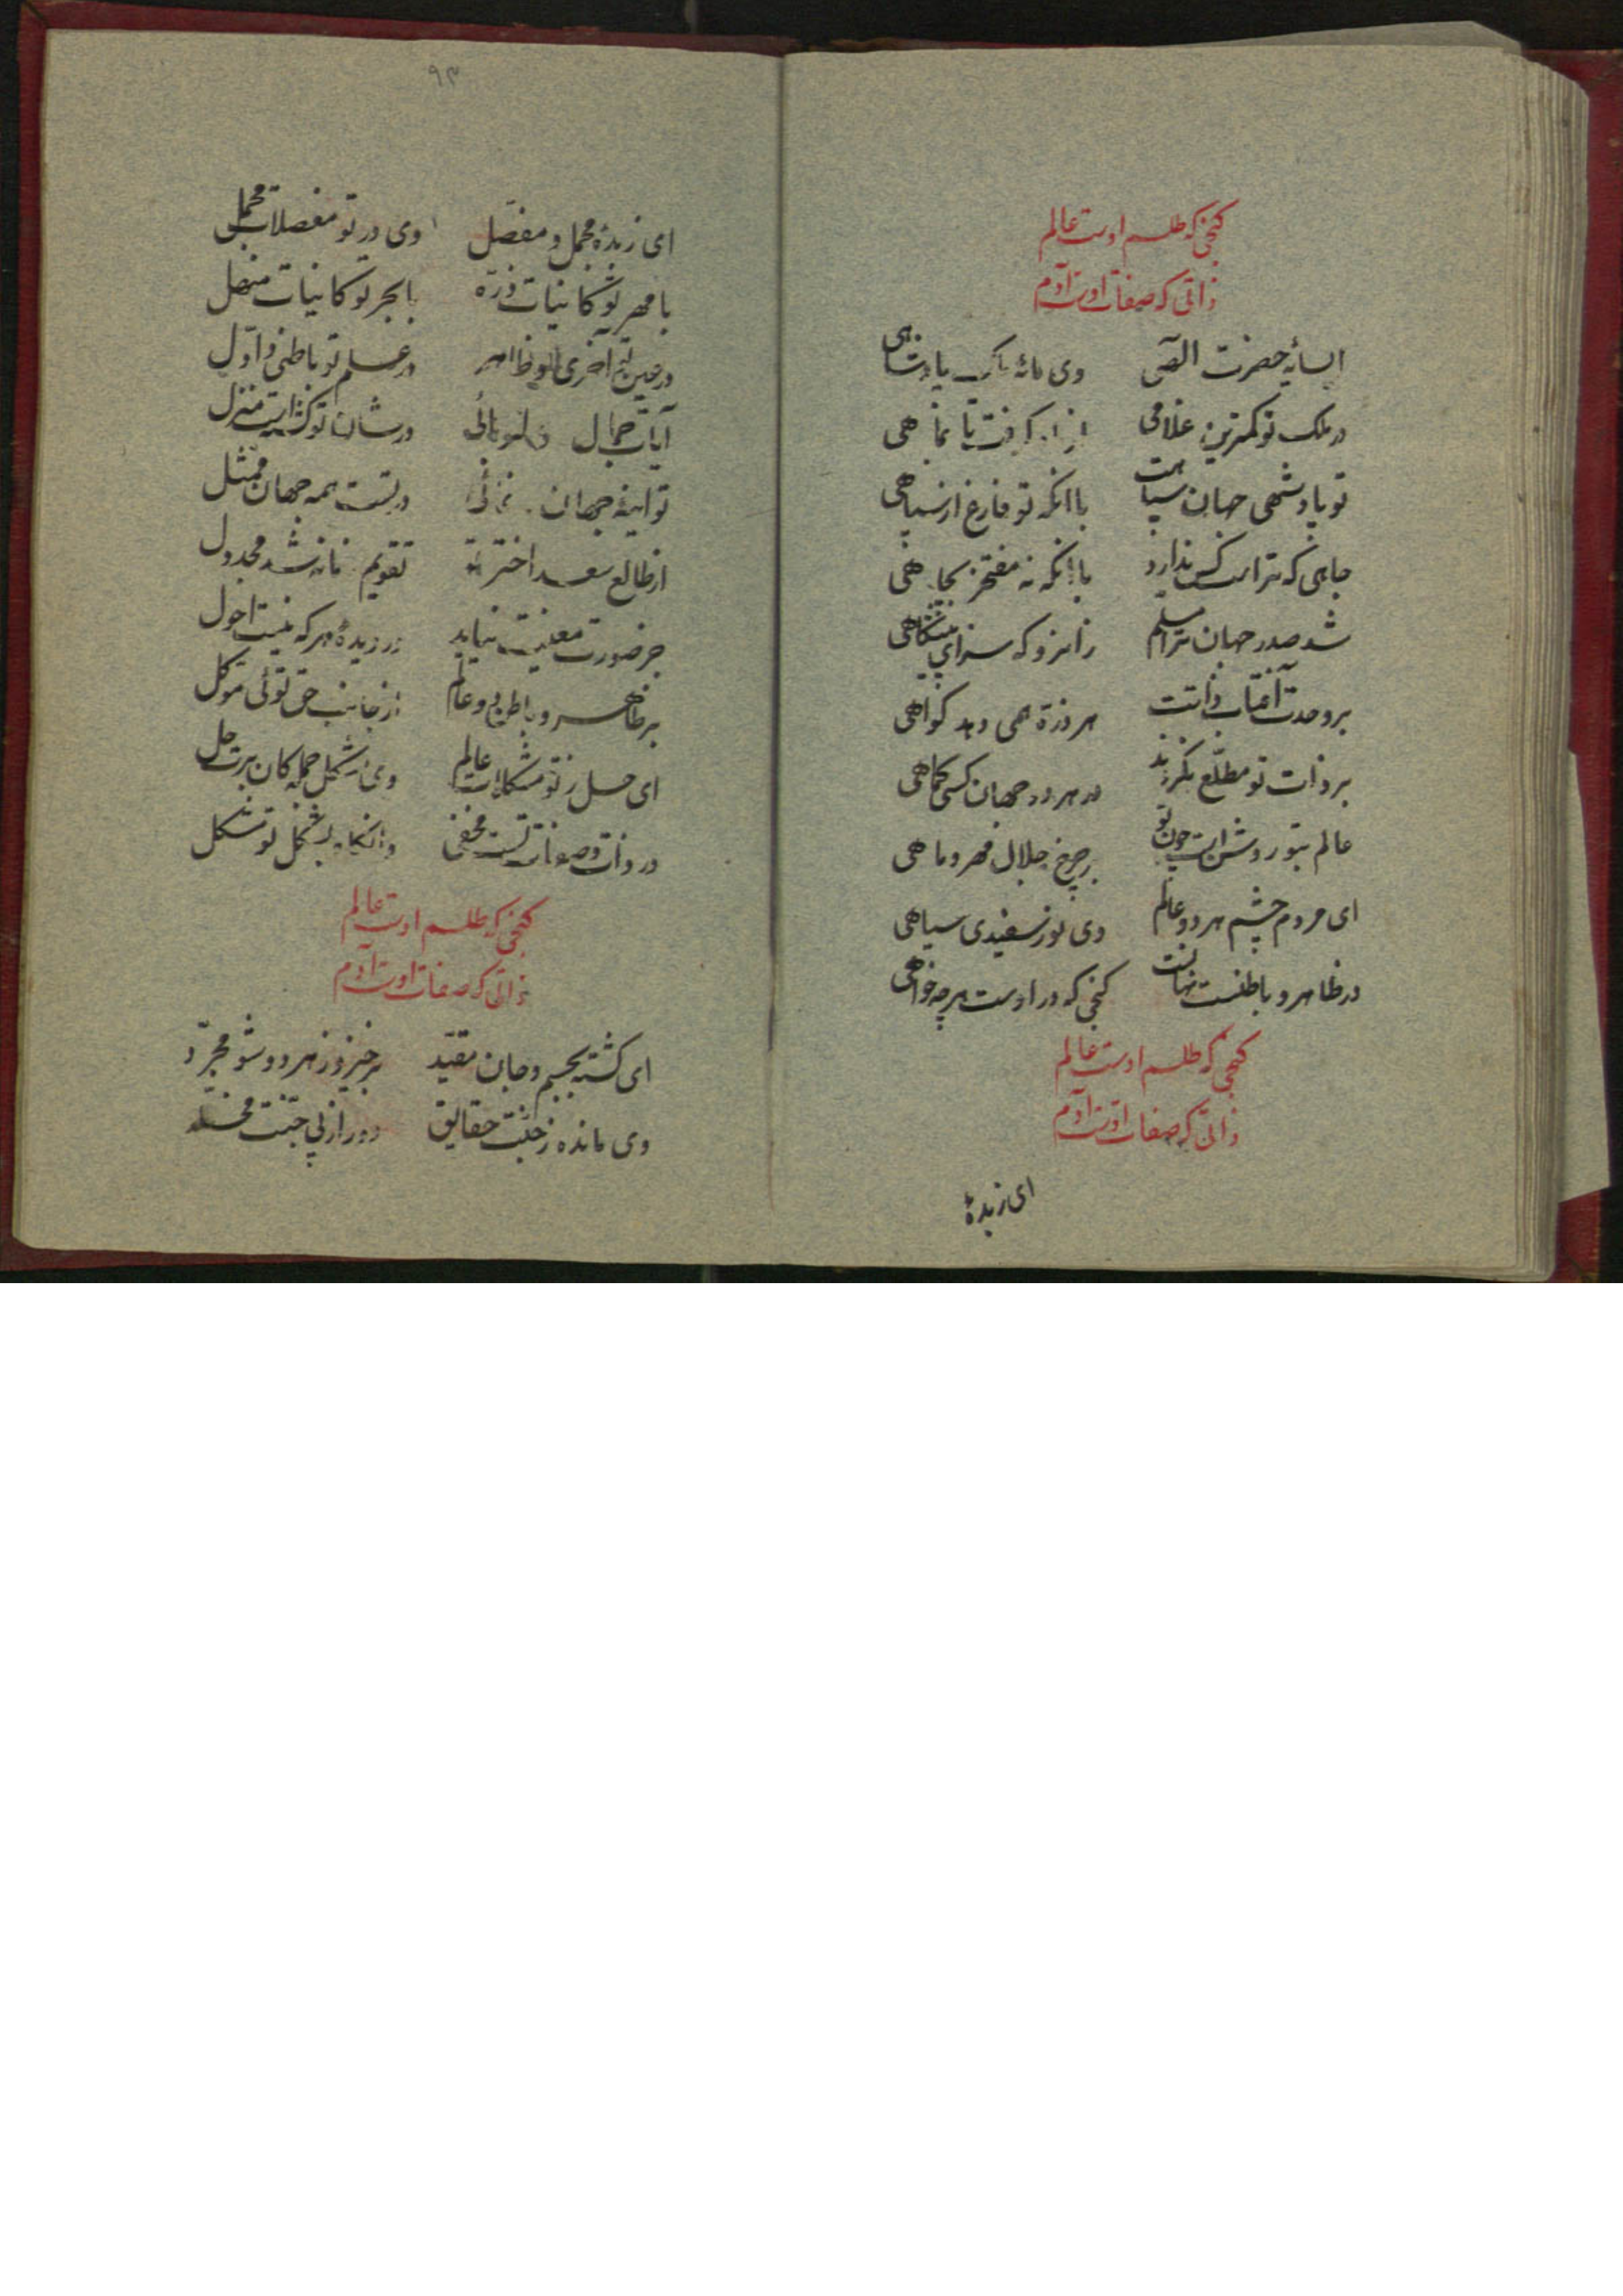 کنجی که طلسم اوست عالم
ذاتی که صفات اوست آدم
ای سایهٔ حضرت الهی وی مایهٔ پادشاهی
در ملک تو کمترین غلامی از
تو پادشهی جهان سپاهت با آنکه تو فارغ از سپاهی
جاهی که تراست کس ندارد با آنکه نه مفتخر بجاهی
شد صدر جهان ترا مسلم زانرو که سزای پیشگاهی
بر وحدت آفتاب ذاتت هر ذرّه همی دهد کواهی
بر ذات تو مطلّع نکردند در هر دو جهان کسی کماهی
عالم بتو روشن است چون تو بر چرخ جلال مهر و ماهی
ای مردم چشم هر دو عالم وی نور سفیدی سیاهی
در ظاهر و باطنست نهانست کنجی که در اوست هرچه خواهی
کنجی که طلسم اوست عالم
ذاتی که صفات اوست آدم
ای زبدهٔ
۹۳
ای زبدهٔ مجمل و مفصّل وی در تو مفصلات مجمل
با مهر تو کاینات ذرّه با بحر تو کاینات منهل
در عین آخری ظاهر در علم تو باطنی و اوّل
آیات جمال در شان تو کشته است منزل
تو آینهٔ جهان نمائی در تست همه جهان ممثّل
از طالع سعد اختر تو تقویم شد مجدول
جز صورت معنیت نیاید در دیدهٔ هر که نیست احول
بر ظاهر و باطن دو عالم از جانب حق توئی موکّل
ای حل ز تو مشکلات عالم وی مشکل جمله کان برت حل
در ذات و صفات تست مخفی وانکاه بشکل تو مشکل
کنجی که طلسم اوست عالم
ذاتی که صفات اوست آدم
ای کشته بجسم و جان مقیّد برخیز و ز هر دو شو مجرّد
وی مانده ز جنّت حقایق دور از پی جنّت مخلّد